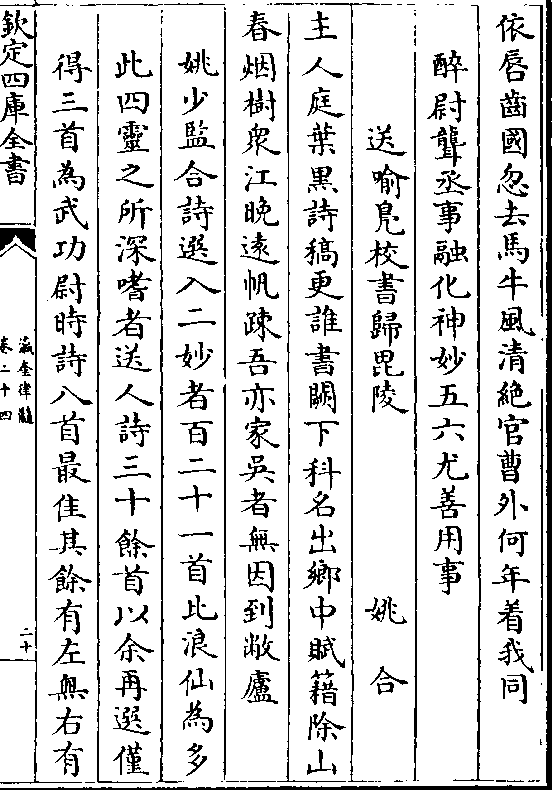 依唇齒國忽去馬牛風清絶官曹外何年着我同
醉尉聾丞事融化神妙五六尤善用事
送喻凫校書歸毘陵　姚合
主人庭葉黒詩稿更誰書闕下科名出鄉中賦籍除山
春烟樹衆江晚逺帆疎吾亦家吳者無因到敝廬
姚少監合詩選入二妙者百二十一首比浪仙為多
此四靈之所深嗜者送人詩三十餘首以余再選僅
得三首為武功尉時詩八首最佳其餘有左無右有
欽定四庫全書
瀛奎律髓
卷二十四
二十